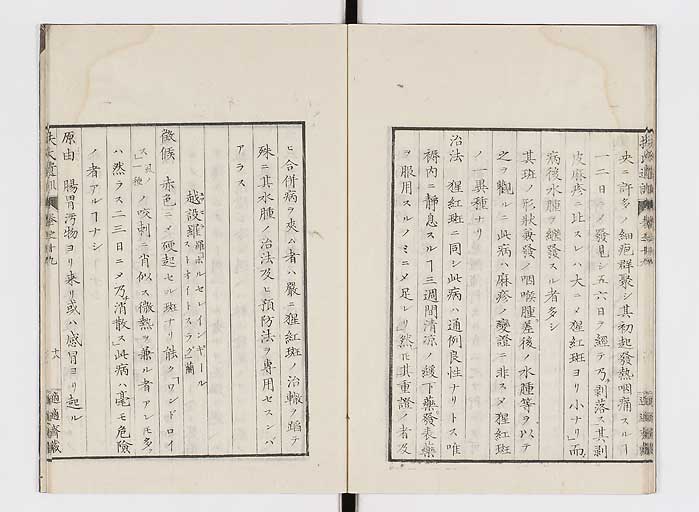 央ニ許多ノ細疱群聚シ其初起發熱咽痛スルヿ
一二日ニノ發見シ五六日ヲ經テ乃剥落ス其剥
皮麻疹ニ比スレハ大ニメ猩紅斑ヨリ小ナリ而
病後水腫ヲ継發スル者多シ
其斑ノ形狀兼發ノ咽喉腫差後ノ水腫等ヲ以テ
之ヲ觀ルニ此病ハ麻疹ノ變證ニ非スメ猩紅斑
ノ一異種ナリ
治法 猩紅斑ニ同シ此病ハ通例良性ナリトス唯
褥內ニ靜息スルヿ三週間清凉ノ緩下藥發表藥
ヲ服用スルノミニメ足レ 然モ其重證ノ者及
扶氏遺訓
ヒ合併病ヲ夾ム者ハ嚴ニ猩紅斑ノ治轍ノ蹈テ
殊ニ其水腫ノ治法及ヒ預防法ヲ專用セスンバ
アラス
越設羅 羅ポルセレインギール
ストオイトスラグ 蘭
徵候 赤色ニメ硬起セル斑ナリ能クロンドロイ
ス 虱ノ一種 ノ咬刺ニ肖似ス微熱ヲ兼ル者アレモ多ク
ハ然ラス二三日ニメ乃消散ス此病ハ毫モ危險
ノ者アルヿナシ
原由 腸胃污物ヨリ來リ或ハ感冒ヨリ起ル
扶氏遺訓
適適齋藏